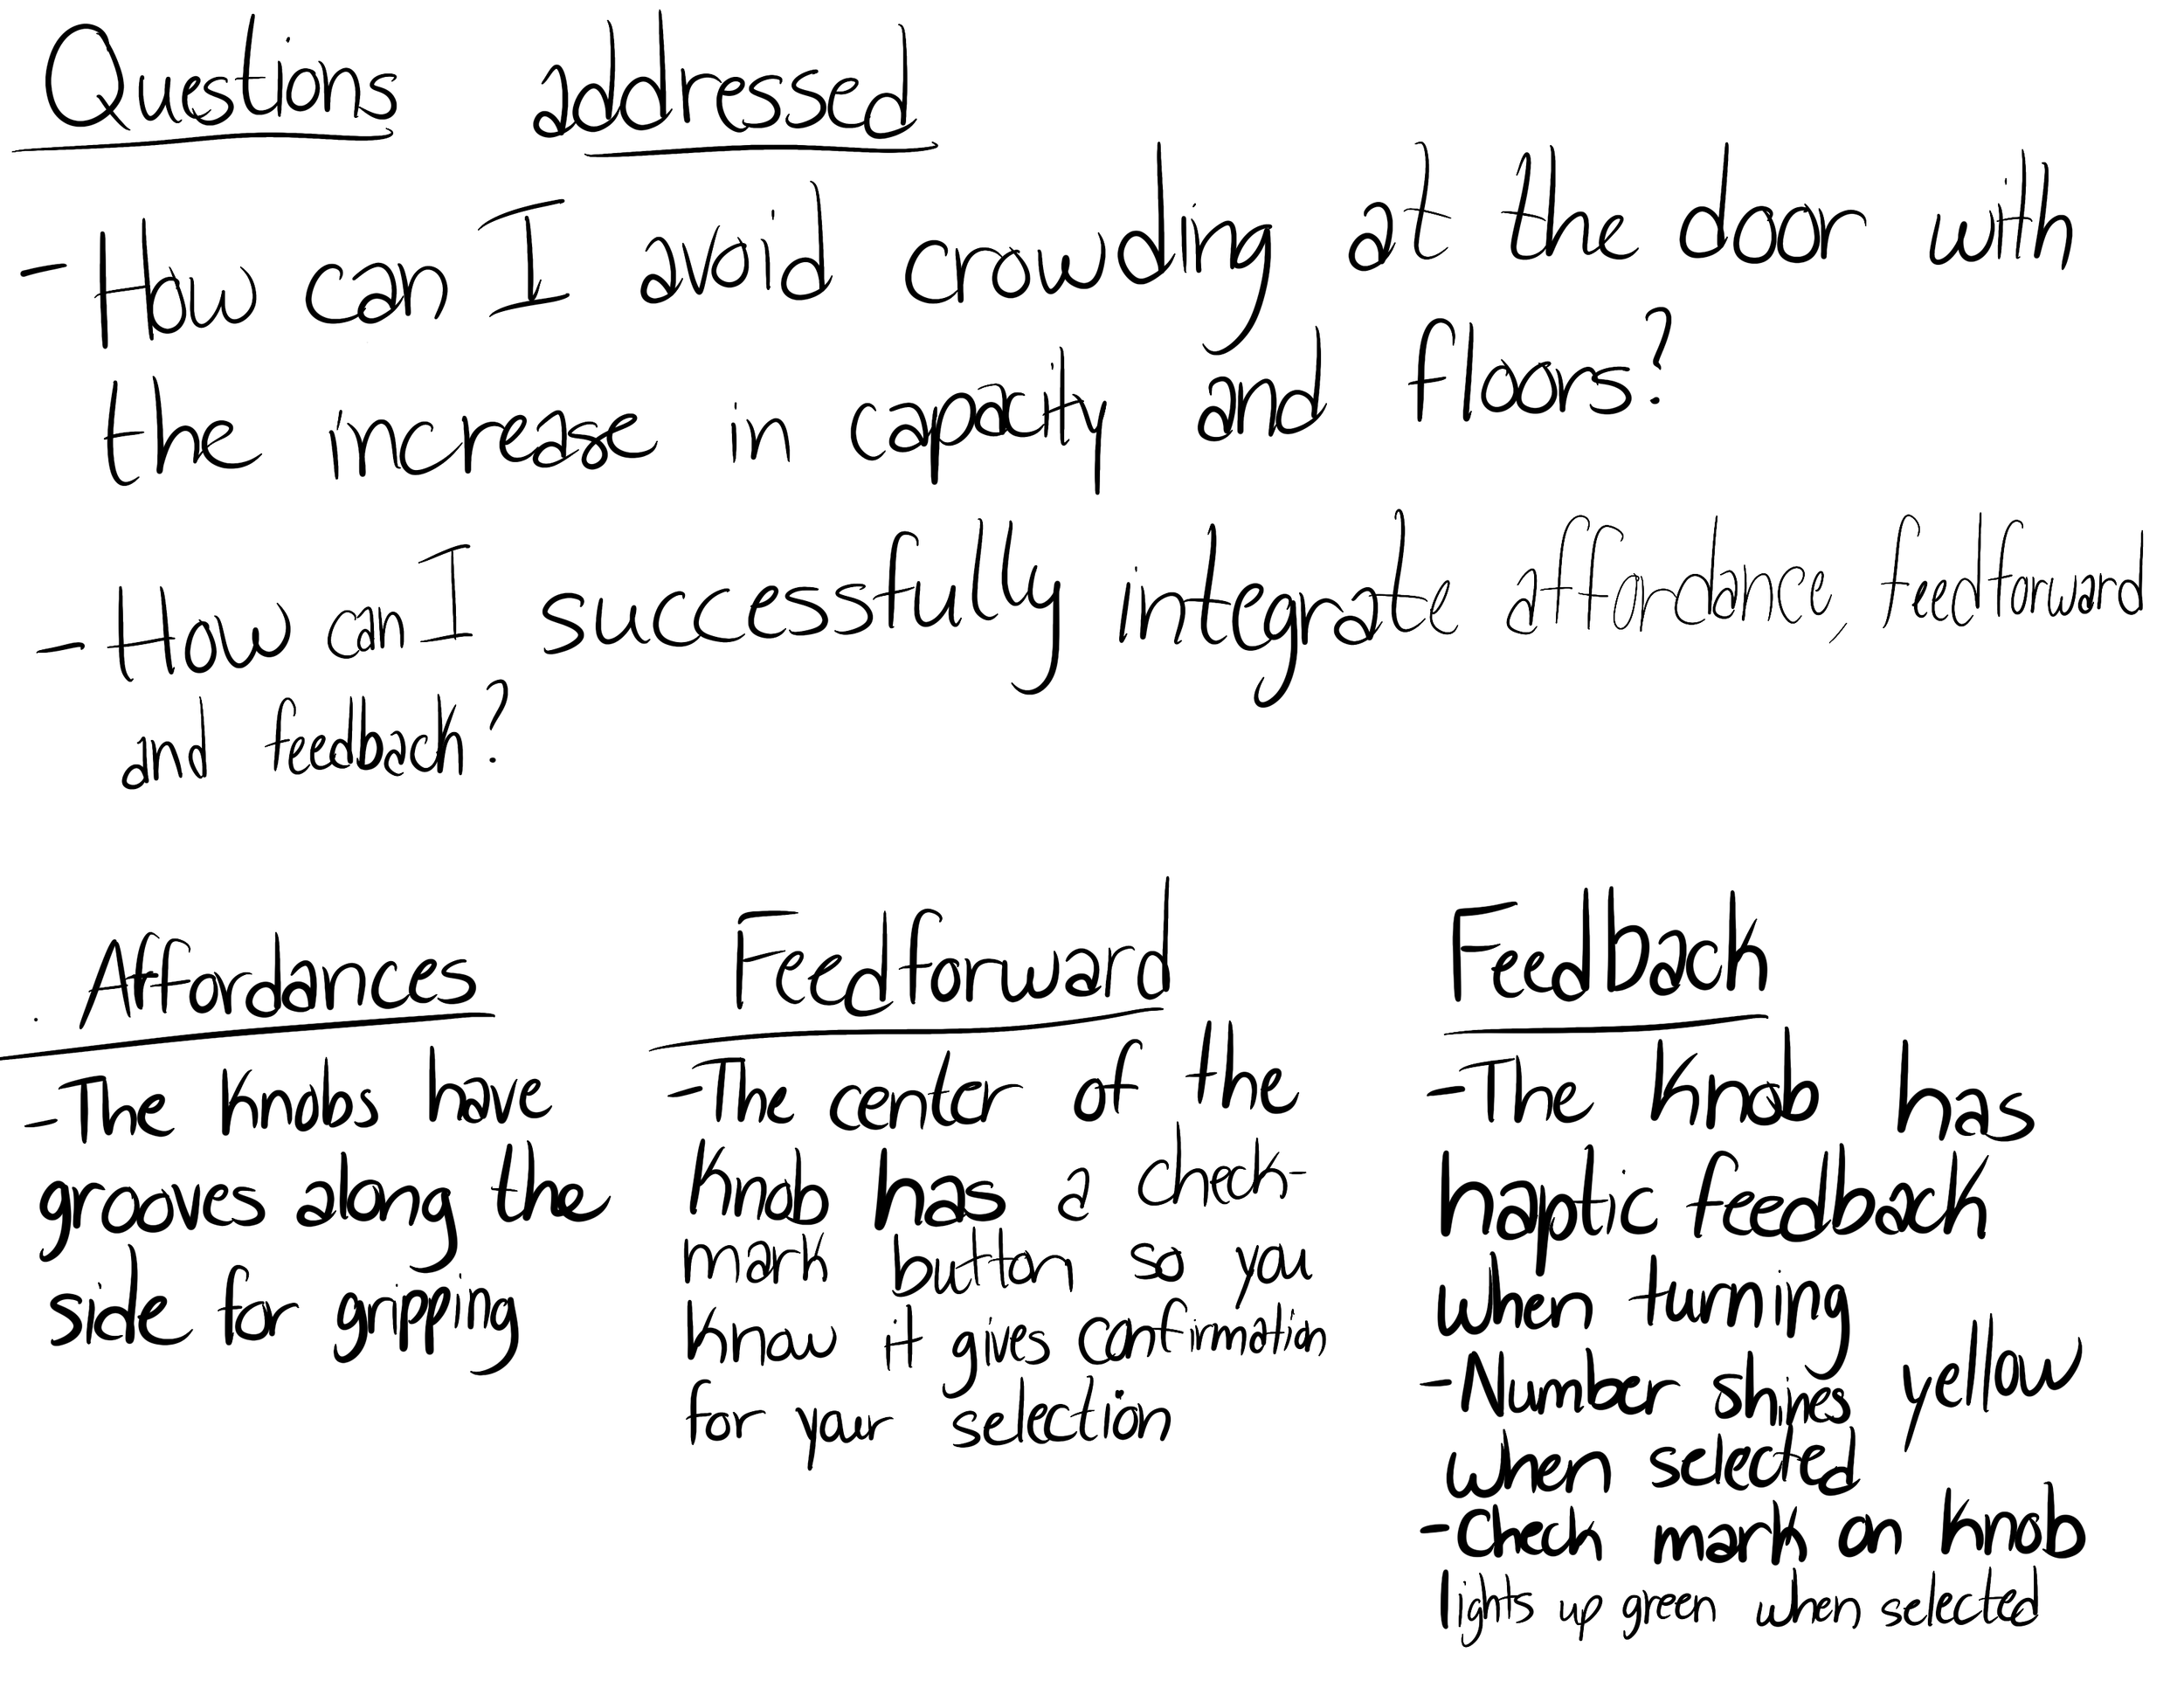 Questions addressed
- How can I avoid crowding at the door with
the increase in capacity and floors?
- How can I successfully integrate affordance, feedforward
and feedback?
Affordances
- The knobs have
grooves along the
side for gripping
Feedforward
- The center of the
knob has a check-
mark button so you
know it gives confirmation
for your selection
Feedback
- The knob has
haptic feedback
when turning
- Number shines yellow
when selected
- Check mark on knob
lights up green when selected